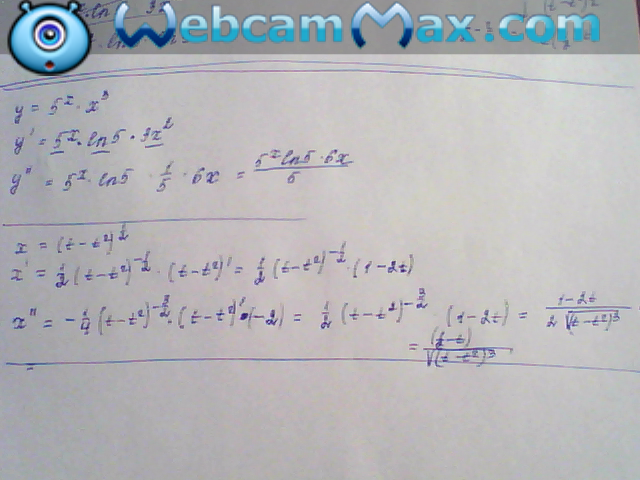 WebcamMax.com
y = 5^x · x^3
y' = 5^x · ln5 · 3x^2
y'' = 5^x · ln5 · 1/5 · 6x = 5^x ln5 · 6x / 5
x = (t - t^2)^1/2
x' = 1/2 (t - t^2)^-1/2 · (t - t^2)' = 1/2 (t - t^2)^-1/2 · (1 - 2t)
x'' = -1/4 (t - t^2)^-3/2 (t - t^2)' · (-2) = 1/2 (t - t^2)^-3/2 · (1 - 2t) = 1 - 2t / 2 √(t - t^2)^3